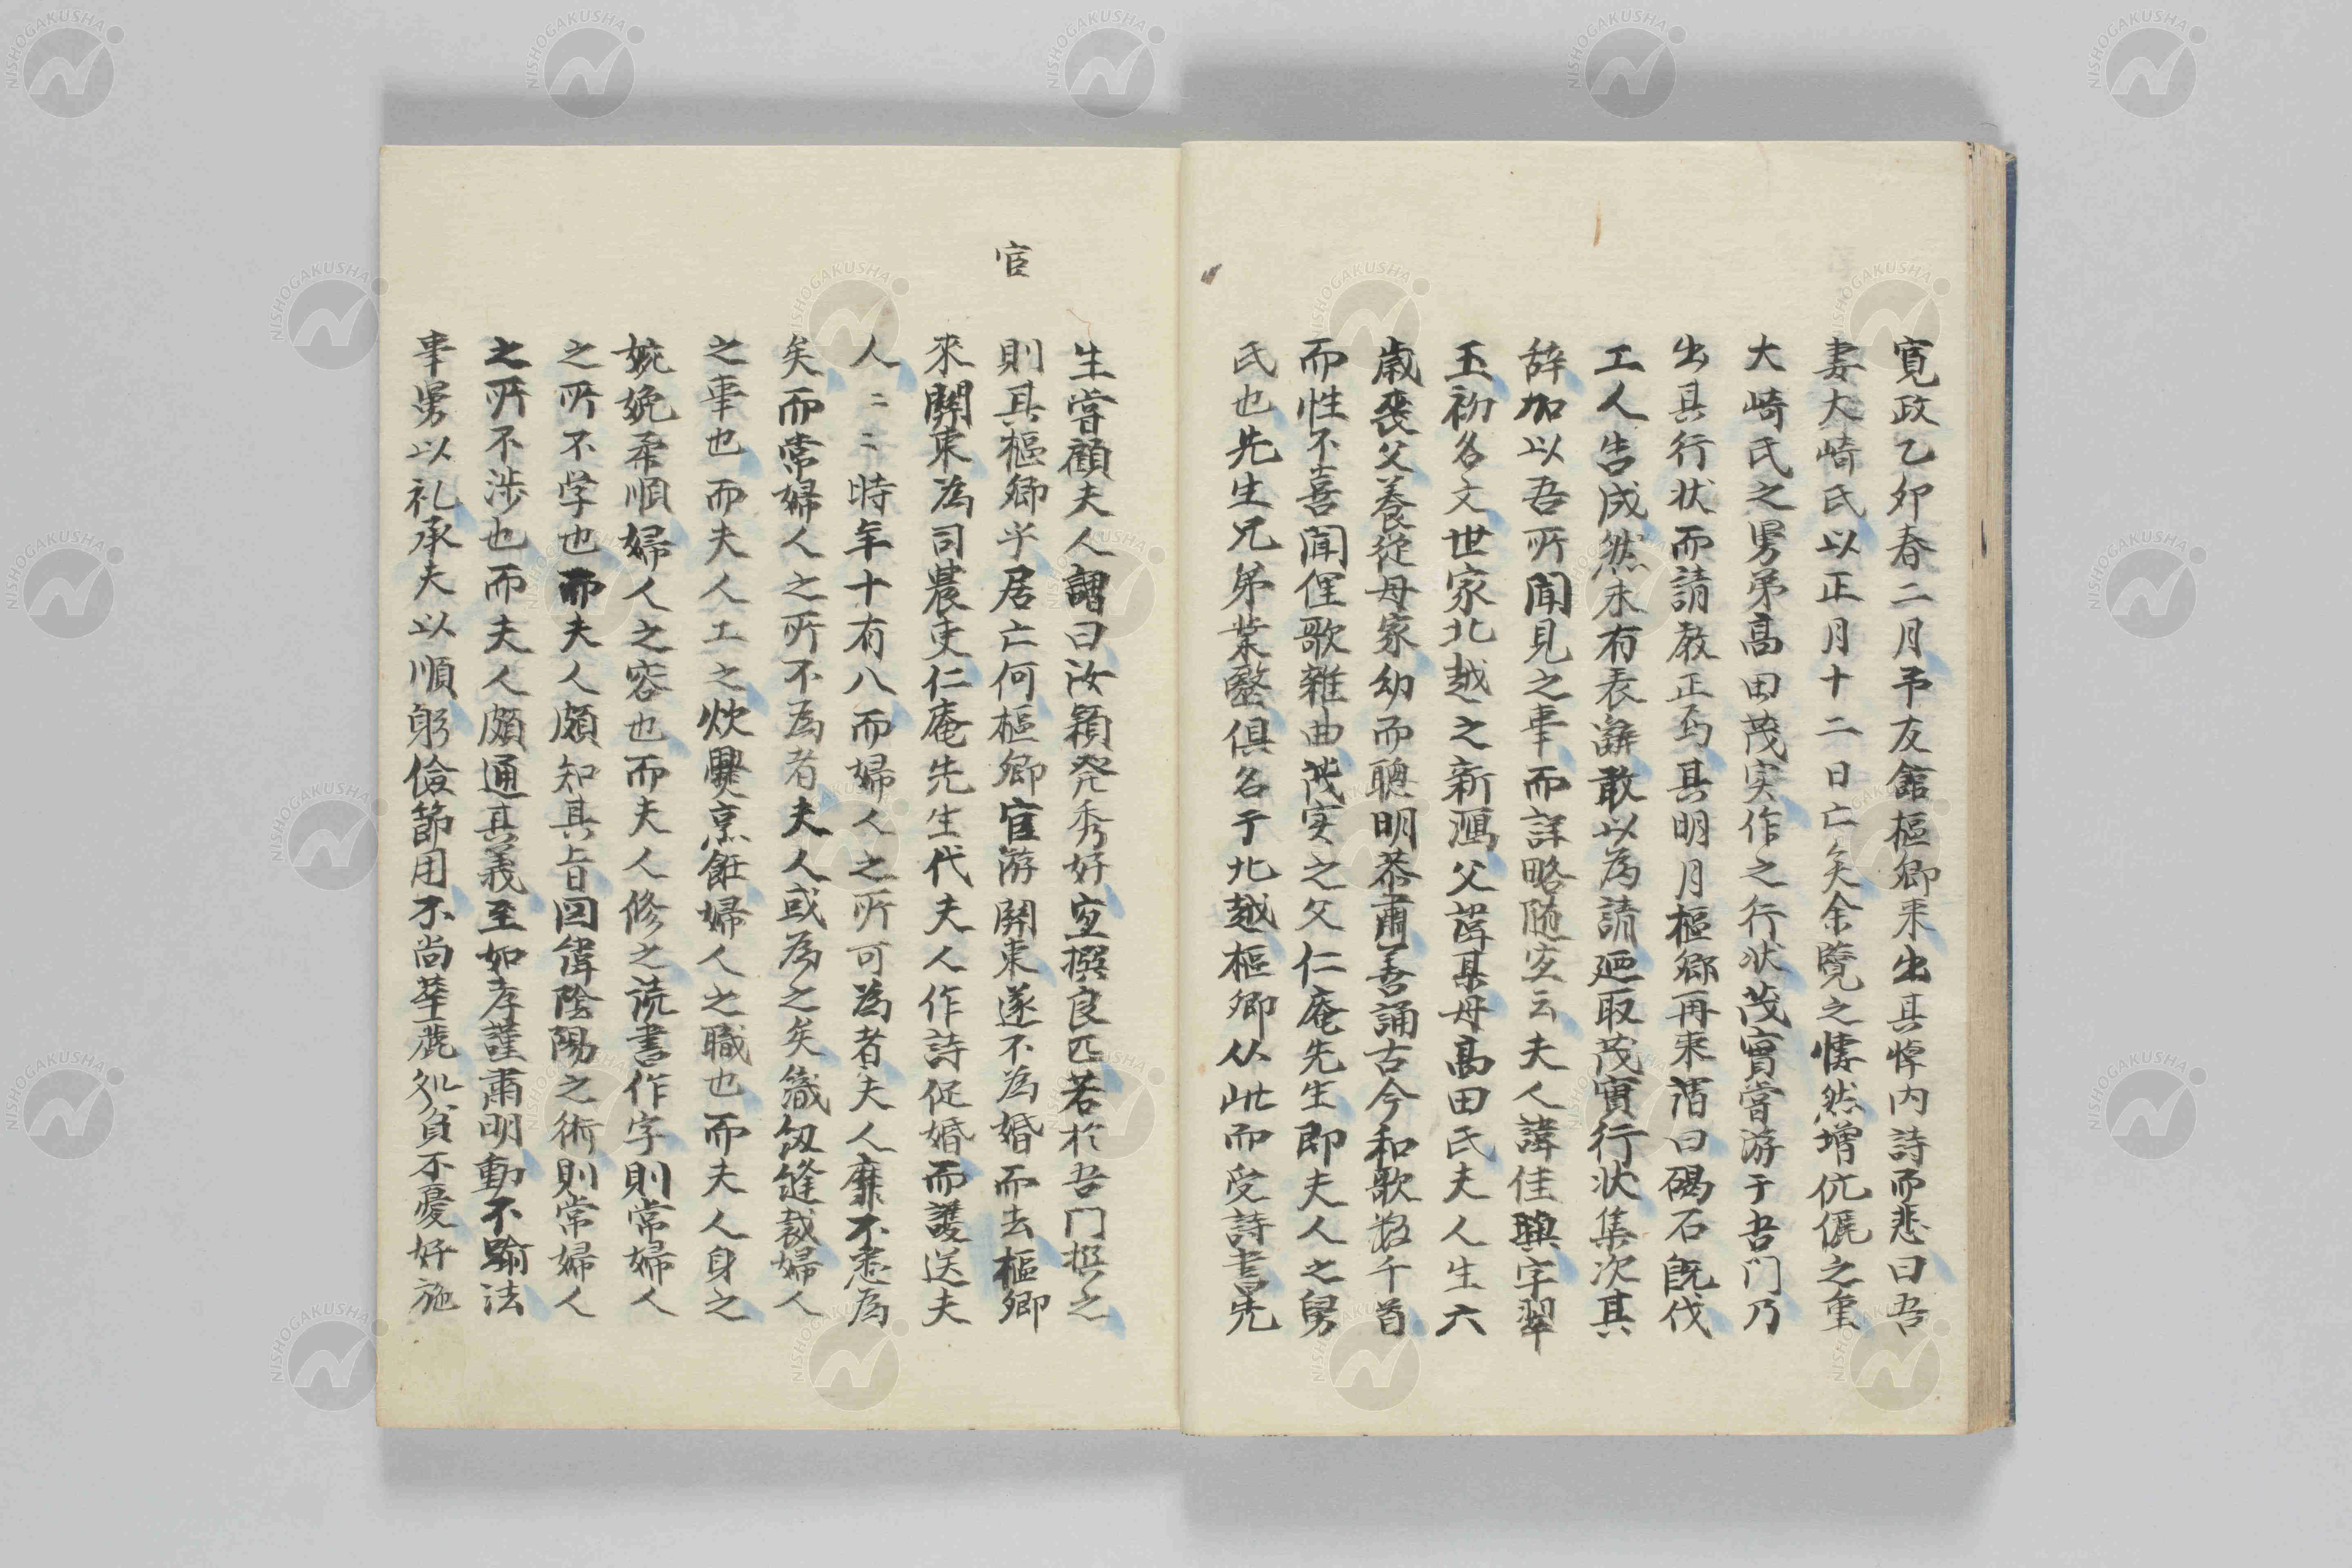 寛政乙卯春二月予友舘樞卿来出其悼内詩而悲曰吾
妻大﨑氏以正月十二日亡矣余覧之悽然増伉儷之重
大﨑氏之男弟髙田茂実作之行状茂實嘗游于吾門乃
出其行状而請教正焉其明月樞郷再来请曰碣石既伐
工人告成然未有表辭敢以為請廼取茂實行状集次其
辞加以吾所聞見之事而詳略随宜云夫人諱佳興字翠
玉初名文世家北越之新潟父諱某母髙田氏夫人生六
歳喪父養從母家幼而聰明恭肅善誦古今和歌数千首
而性不喜聞俚歌雜曲茂実之父仁庵先生即夫人之舅
氏也先生兄弟業醫俱名于北越樞卿从此而受詩書先
生嘗顧夫人謂曰汝穎発秀好宜撰良匹若於吾門撰之
則其樞卿乎居亡何樞卿宦游關東遂不為婚而去樞卿
宦
來關東為司農吏仁庵先生代夫人作詩促婚而護送夫
人〻〻時年十有八而婦人之所可為者夫人靡不悉為
矣而常婦人之所不為者夫人或為之矣織紉縫裁婦人
之事也而夫人工之炊爨烹飪婦人之職也而夫人身之
婉娩柔順婦人之容也而夫人修之読書作字則常婦人
之所不学也而夫人頗知其旨図緯陰陽之術則常婦人
之所不渉也而夫人頗通其義至如孝謹肅明動不踰法
事舅以礼承夫以順躬儉節用不尚華麗処貧不憂好施